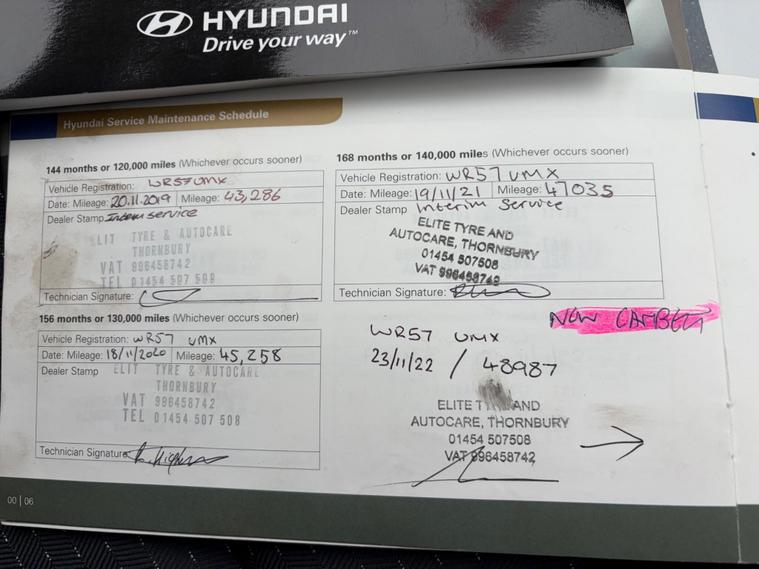 HYUNDAI
Drive your way™
Hyundai Service Maintenance Schedule
144 months or 120,000 miles (Whichever occurs sooner)
Vehicle Registration: WR57 UMX
Date: Mileage: 20.11.2019 Mileage: 43,286
Dealer Stamp Interim service
ELIT TYRE & AUTOCARE
THORNBURY
VAT 996458742
TEL 01454 507 508
Technician Signature:
156 months or 130,000 miles (Whichever occurs sooner)
Vehicle Registration: WR57 UMX
Date: Mileage: 18/11/2020 Mileage: 45,258
Dealer Stamp ELIT TYRE & AUTOCARE
THORNBURY
VAT 996458742
TEL 01454 507 508
Technician Signature
00 | 06
168 months or 140,000 miles (Whichever occurs sooner)
Vehicle Registration: WR57 UMX
Date: Mileage: 19/11/21 Mileage: 47035
Dealer Stamp Interim Service
ELITE TYRE AND
AUTOCARE, THORNBURY
01454 507508
VAT 996458742
Technician Signature:
NEW CAMBELT
WR57 UMX
23/11/22 / 48987
ELITE AND
AUTOCARE, THORNBURY
01454 507508
VAT 996458742